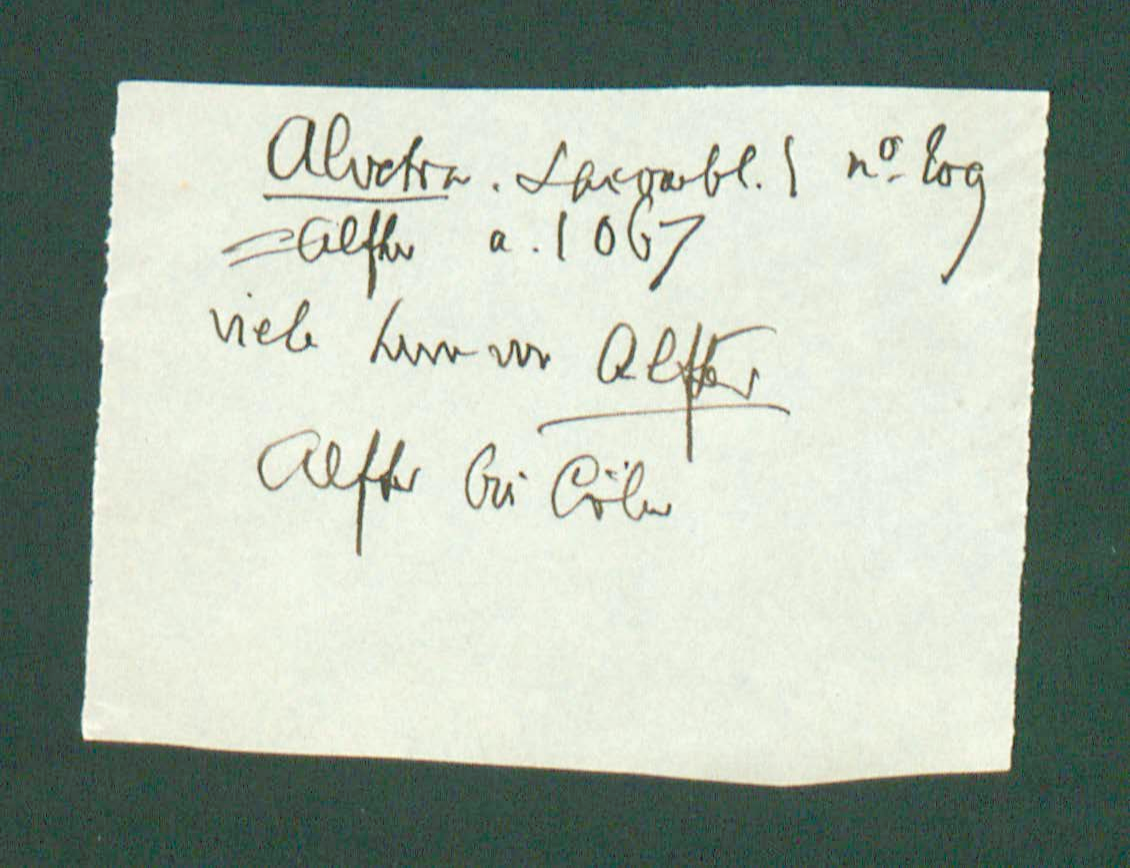 Alvetra. Lacombl. I nº 209
= Alfter a. 1067
viele Herren von Alfter
Alfter bei Cöln